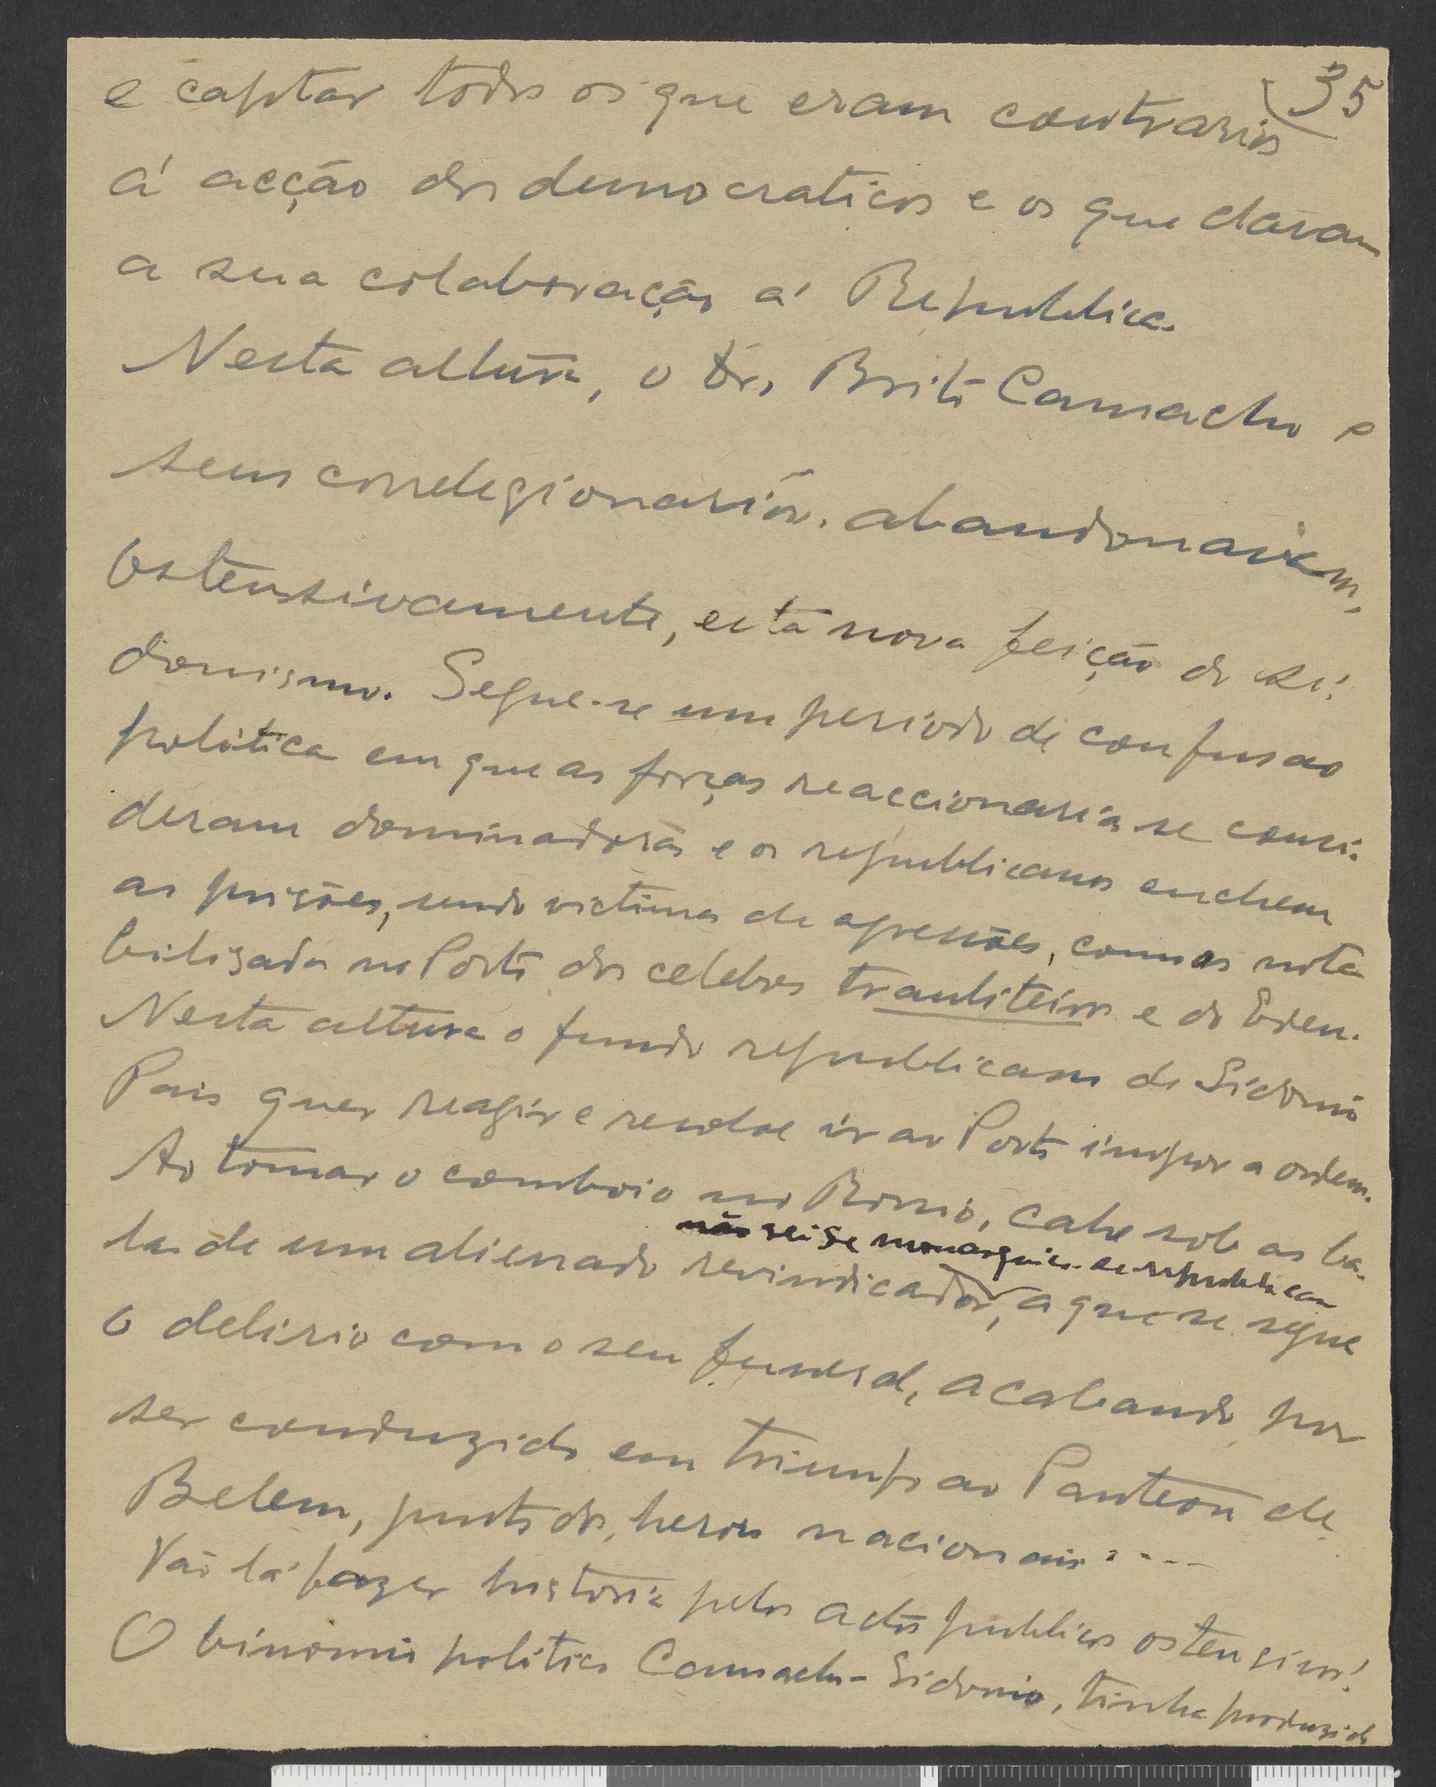 35
e captar todos os que eram contrarios
á acção dos democraticos e os que davam
a sua colaboração á Republica.
Nesta altura, o Dr. Brito Camacho e
seus correlegionarios, abandonavam,
ostensivamente, esta nova feição do si-
donismo. Segue-se um periodo de confusao
politica em que as forças reaccionarias se consi-
deram dominadoras e os republicanos enchem
as prisões, sendo victimas de agressões, como as nota
bilizadas no Porto dos celebres trauliteiros e do Eden.
Nesta altura o fundo republicano de Sidonio
Pais quer reagir e resolve ir ao Porto impor a ordem.
Ao tomar o comboio no Rossio, cahe sob as ba-
não sei se monarquico ou republicano
las de um alienado revindicador, a que se segue
o delirio com o seu funeral, acabando por
ser conduzido em triunfo ao Panteon de
Belem, junto dos herois nacionais ....
Vão lá fazer historia pelos actos publicos ostensivos!
O binomio politico Camacho-Sidonio, tinha produzido